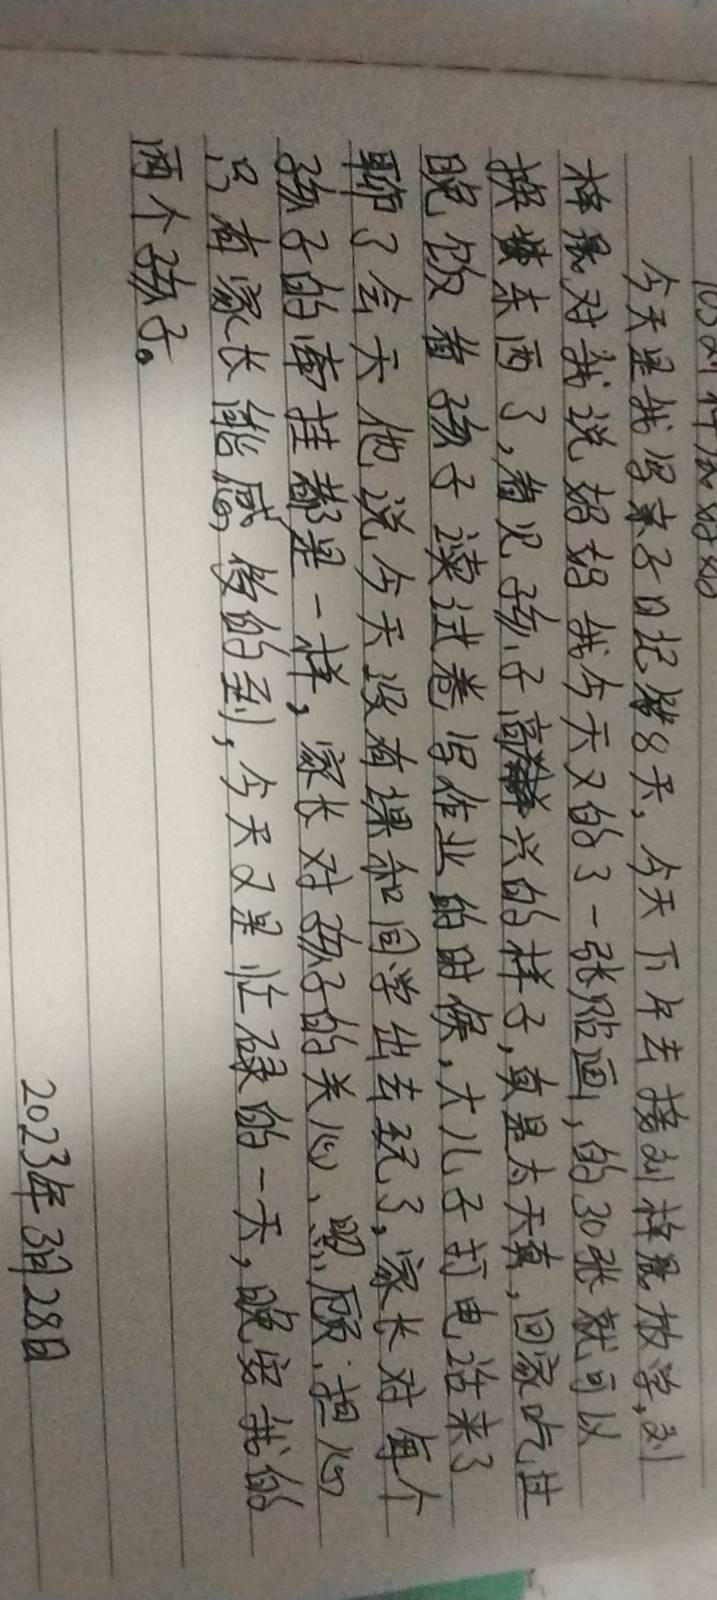 今天是我写亲子日记第8天,今天下午去接刘梓晟放学,刘
梓晟对我说妈妈我今天又的了一张贴画,的30张就可以
换东西了,看见孩子高兴的样子,真是太天真,回家吃过
晚饭看孩子读试卷写作业的时候,大儿子打电话来了
聊了会天他说今天没有课和同学出去玩了,家长对每个
孩子的牵挂都是一样,家长对孩子的关心、照顾、担心
只有家长能感傻的到,今天又是忙碌的一天,晚安我的
两个孩子。
2023年3月28日